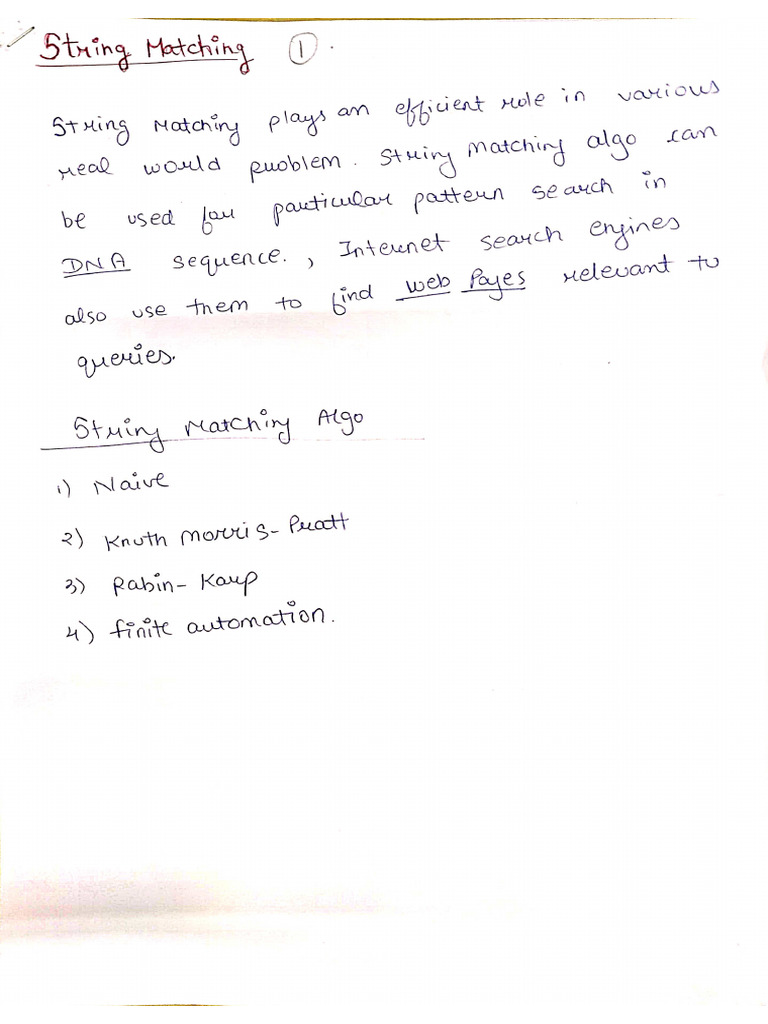 String Matching ①
String Matching plays an efficient role in various
real world problem. String Matching algo can
be used for particular pattern search in
DNA sequence. , Internet search engines
also use them to find web Pages relevant to
queries.
String Matching Algo
1) Naive
2) Knuth Morris-Pratt
3) Rabin-Karp
4) finite automation.